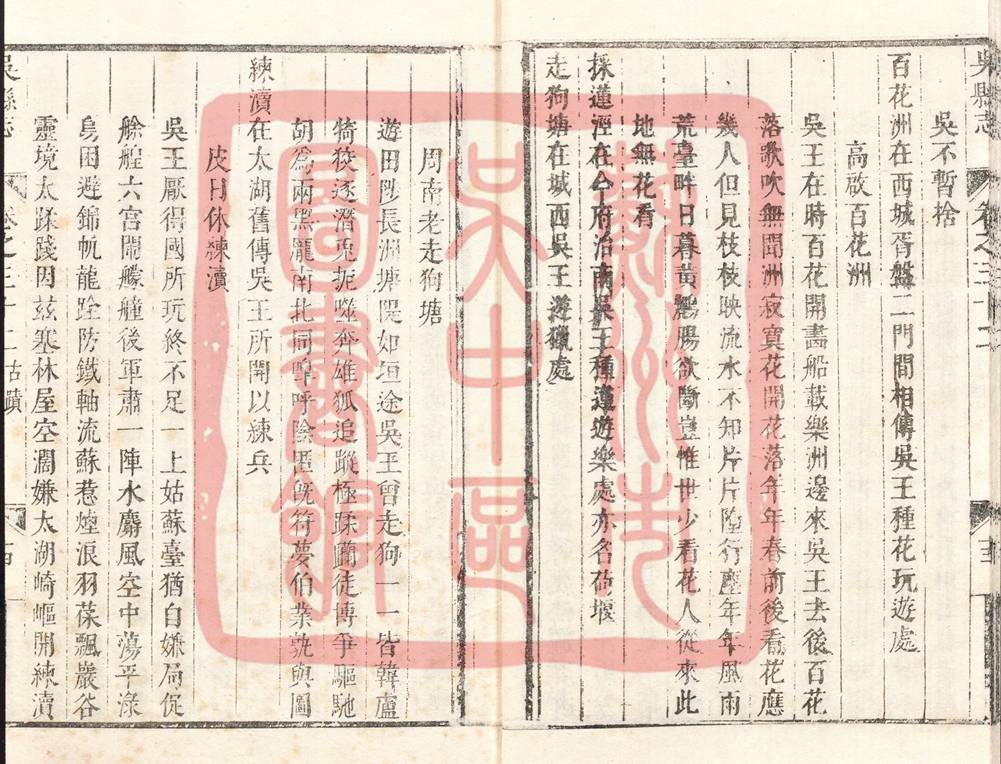 吳縣志
卷之三十二
吳不暫捨
百花洲在西城胥盤二門間相傳吳王種花玩遊處
高啟百花洲
吳王在時百花開畵船載樂洲邊來吳王去後百花
落歌吹無聞洲寂寞花開花落年年春前後看花應
幾人但見枝枝映流水不知片片墮行塵年年風雨
荒臺畔日暮黃鸝腸欲斷豈惟世少看花人從來此
地無花看
採蓮涇在今府治南吳王種蓮遊樂處亦名荷堰
走狗塘在城西吳王遊獵處
周南老走狗塘
遊田陟長洲塘隄如垣途吳王曾走狗一一皆韓盧
犄猣逐潛兎扼噬奔雄狐追蹤極蹂躪徒博爭驅馳
胡爲兩黑龍南北同嘷呼陰匿旣符夢伯業孰與圖
練瀆在太湖舊傳吳王所開以練兵
皮日休練瀆
吳王厭得國所玩終不足一上姑蘇臺猶自嫌局促
艅艎六宮閙艨艟後軍肅一陣水麝風空中蕩平淥
鳥困避錦帆龍跧防鐵軸流蘇惹煙浪羽葆飄巖谷
靈境太蹂踐因茲塞林屋空濶嫌太湖崎嶇開練瀆
吳縣志
卷之三十二 古蹟
蘇州市
吳中區
圖書館